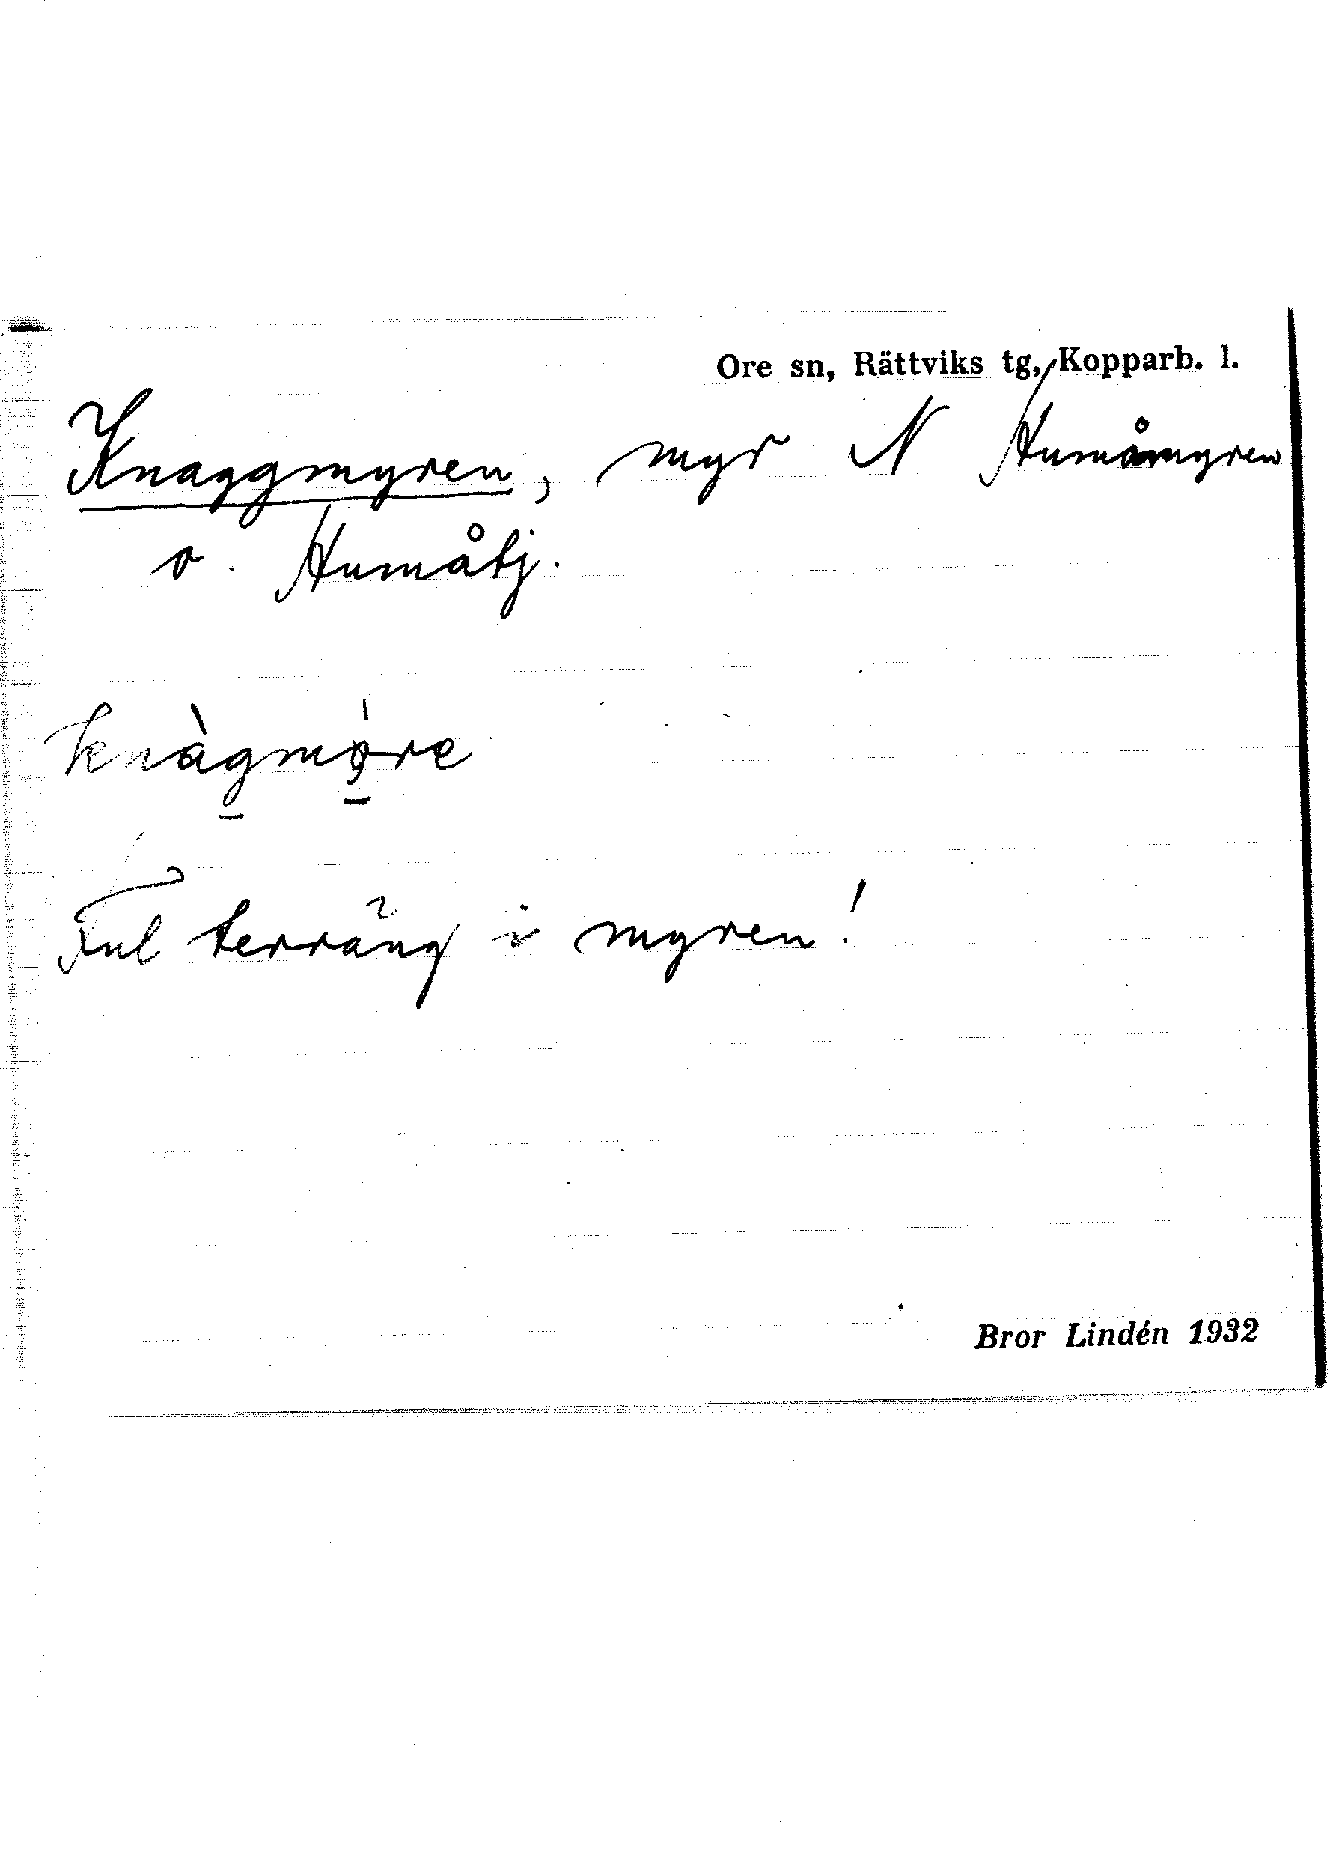 Ore sn, Rättviks tg, Kopparb. l.
Knaggmyren, myr N Humåmyren
o. Humåtj.
knàgmǫ́re
Ful terräng i myren!
Bror Lindén 1932